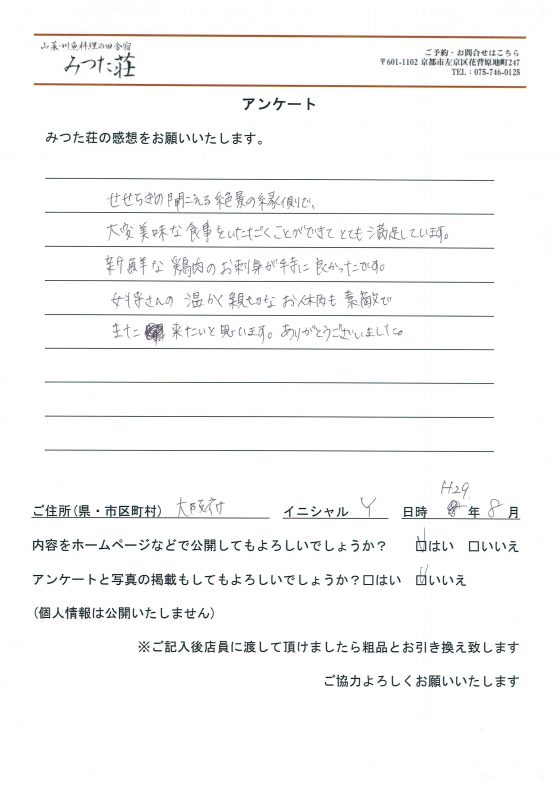 山菜・川魚料理の田舎宿
みつた荘
ご予約・お問合せはこちら
〒601-1102 京都市左京区花背原地町247
TEL：075-746-0125
アンケート
みつた荘の感想をお願いいたします。
せせらぎの聞こえる絶景の縁側で、
大変美味な食事をいただくことができてとても満足しています。
新鮮な鶏肉のお刺身が特に良かったです。
女将さんの温かく親切な お人柄も素敵で
また 来たいと思います。ありがとうございました。
ご住所(県・市区町村) 大阪府 イニシャル Y 日時 H29. 年 8 月
内容をホームページなどで公開してもよろしいでしょうか？ ☑はい □いいえ
アンケートと写真の掲載もしてもよろしいでしょうか？□はい ☑いいえ
(個人情報は公開いたしません)
※ご記入後店員に渡して頂けましたら粗品とお引き換え致します
ご協力よろしくお願いいたします